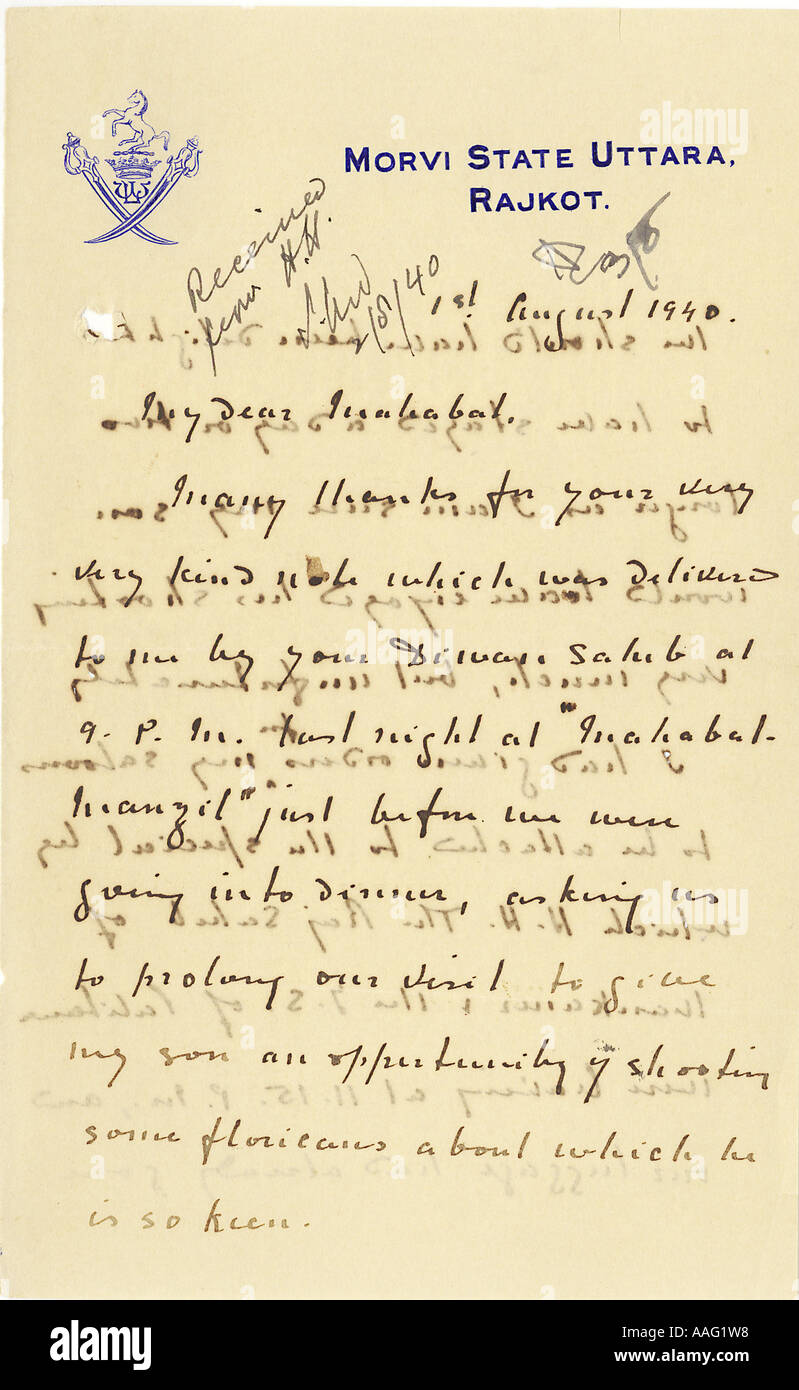 MORVI STATE UTTARA,
RAJKOT.
Received
from H.H.
2/8/40
1st August 1940.
My Dear Mahabat.
Many thanks for your very
very kind note which was delivered
to me by your Diwan Saheb at
9. P. M. last night at "Mahabat-
Manzil" just before we were
going in to dinner, asking us
to prolong our visit to give
my son an opportunity of shooting
some floricans about which he
is so keen.
alamy
alamy
Image ID: AAG1W8
www.alamy.com